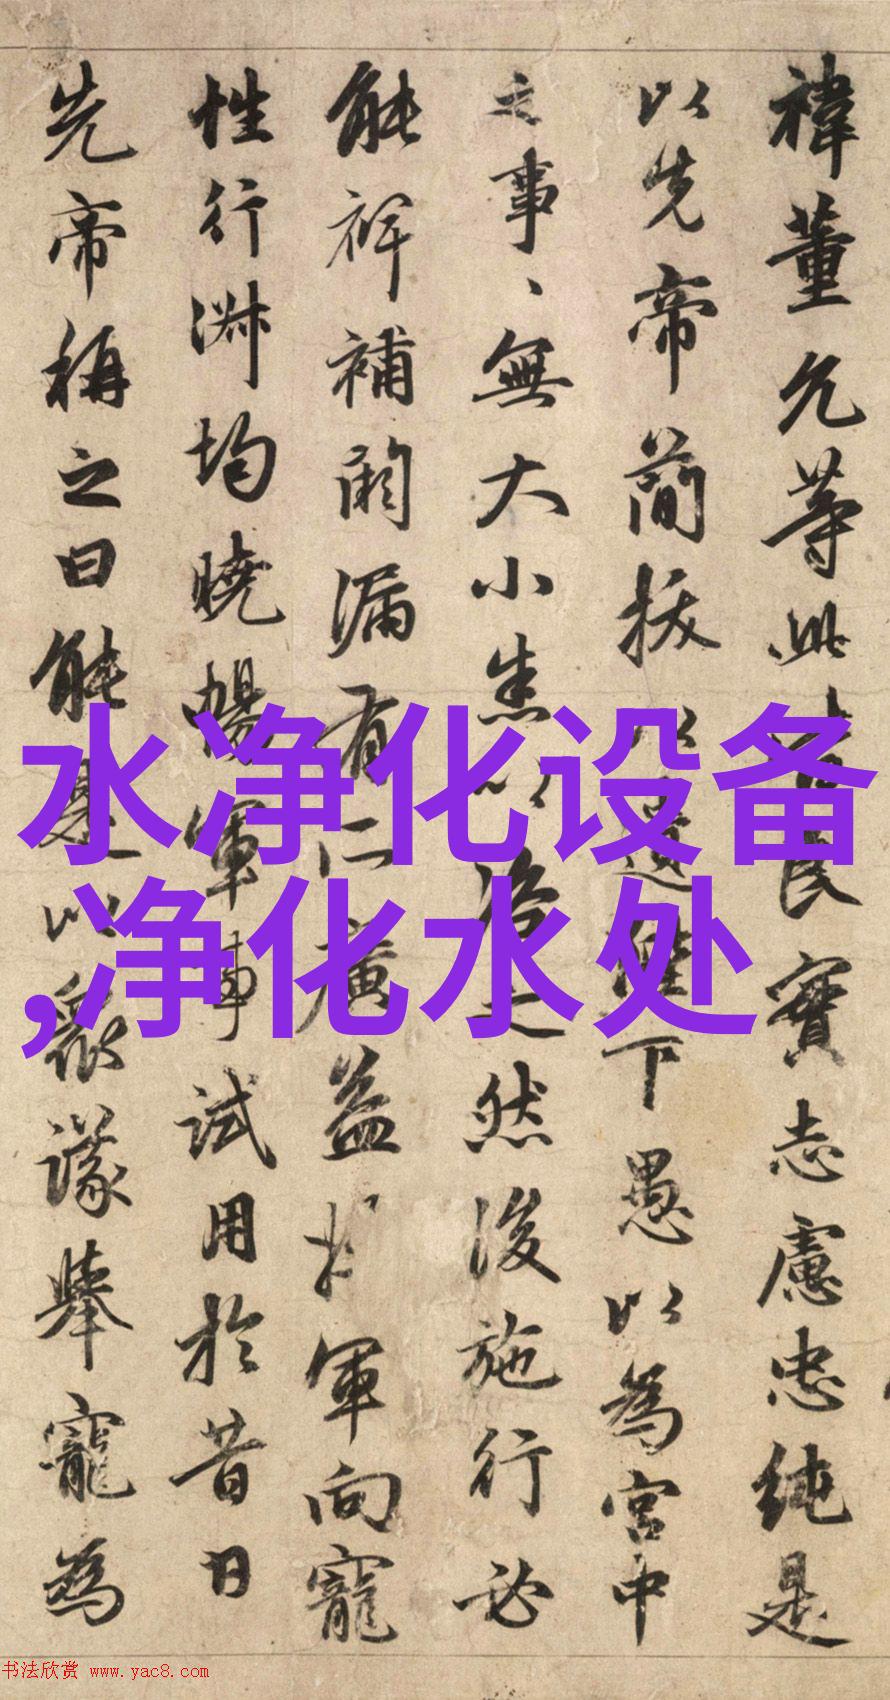 祎董允等此皆良實志慮忠純是
以先帝簡拔以遺陛下愚以為宮中
之事事無大小悉以咨之然後施行必
能裨補闕漏有所廣益將軍向寵
性行淑均曉暢軍事試用於昔日
先帝稱之曰能是以衆議舉寵為
水净化设备
,净化水处
书法欣赏 www.yac8.com